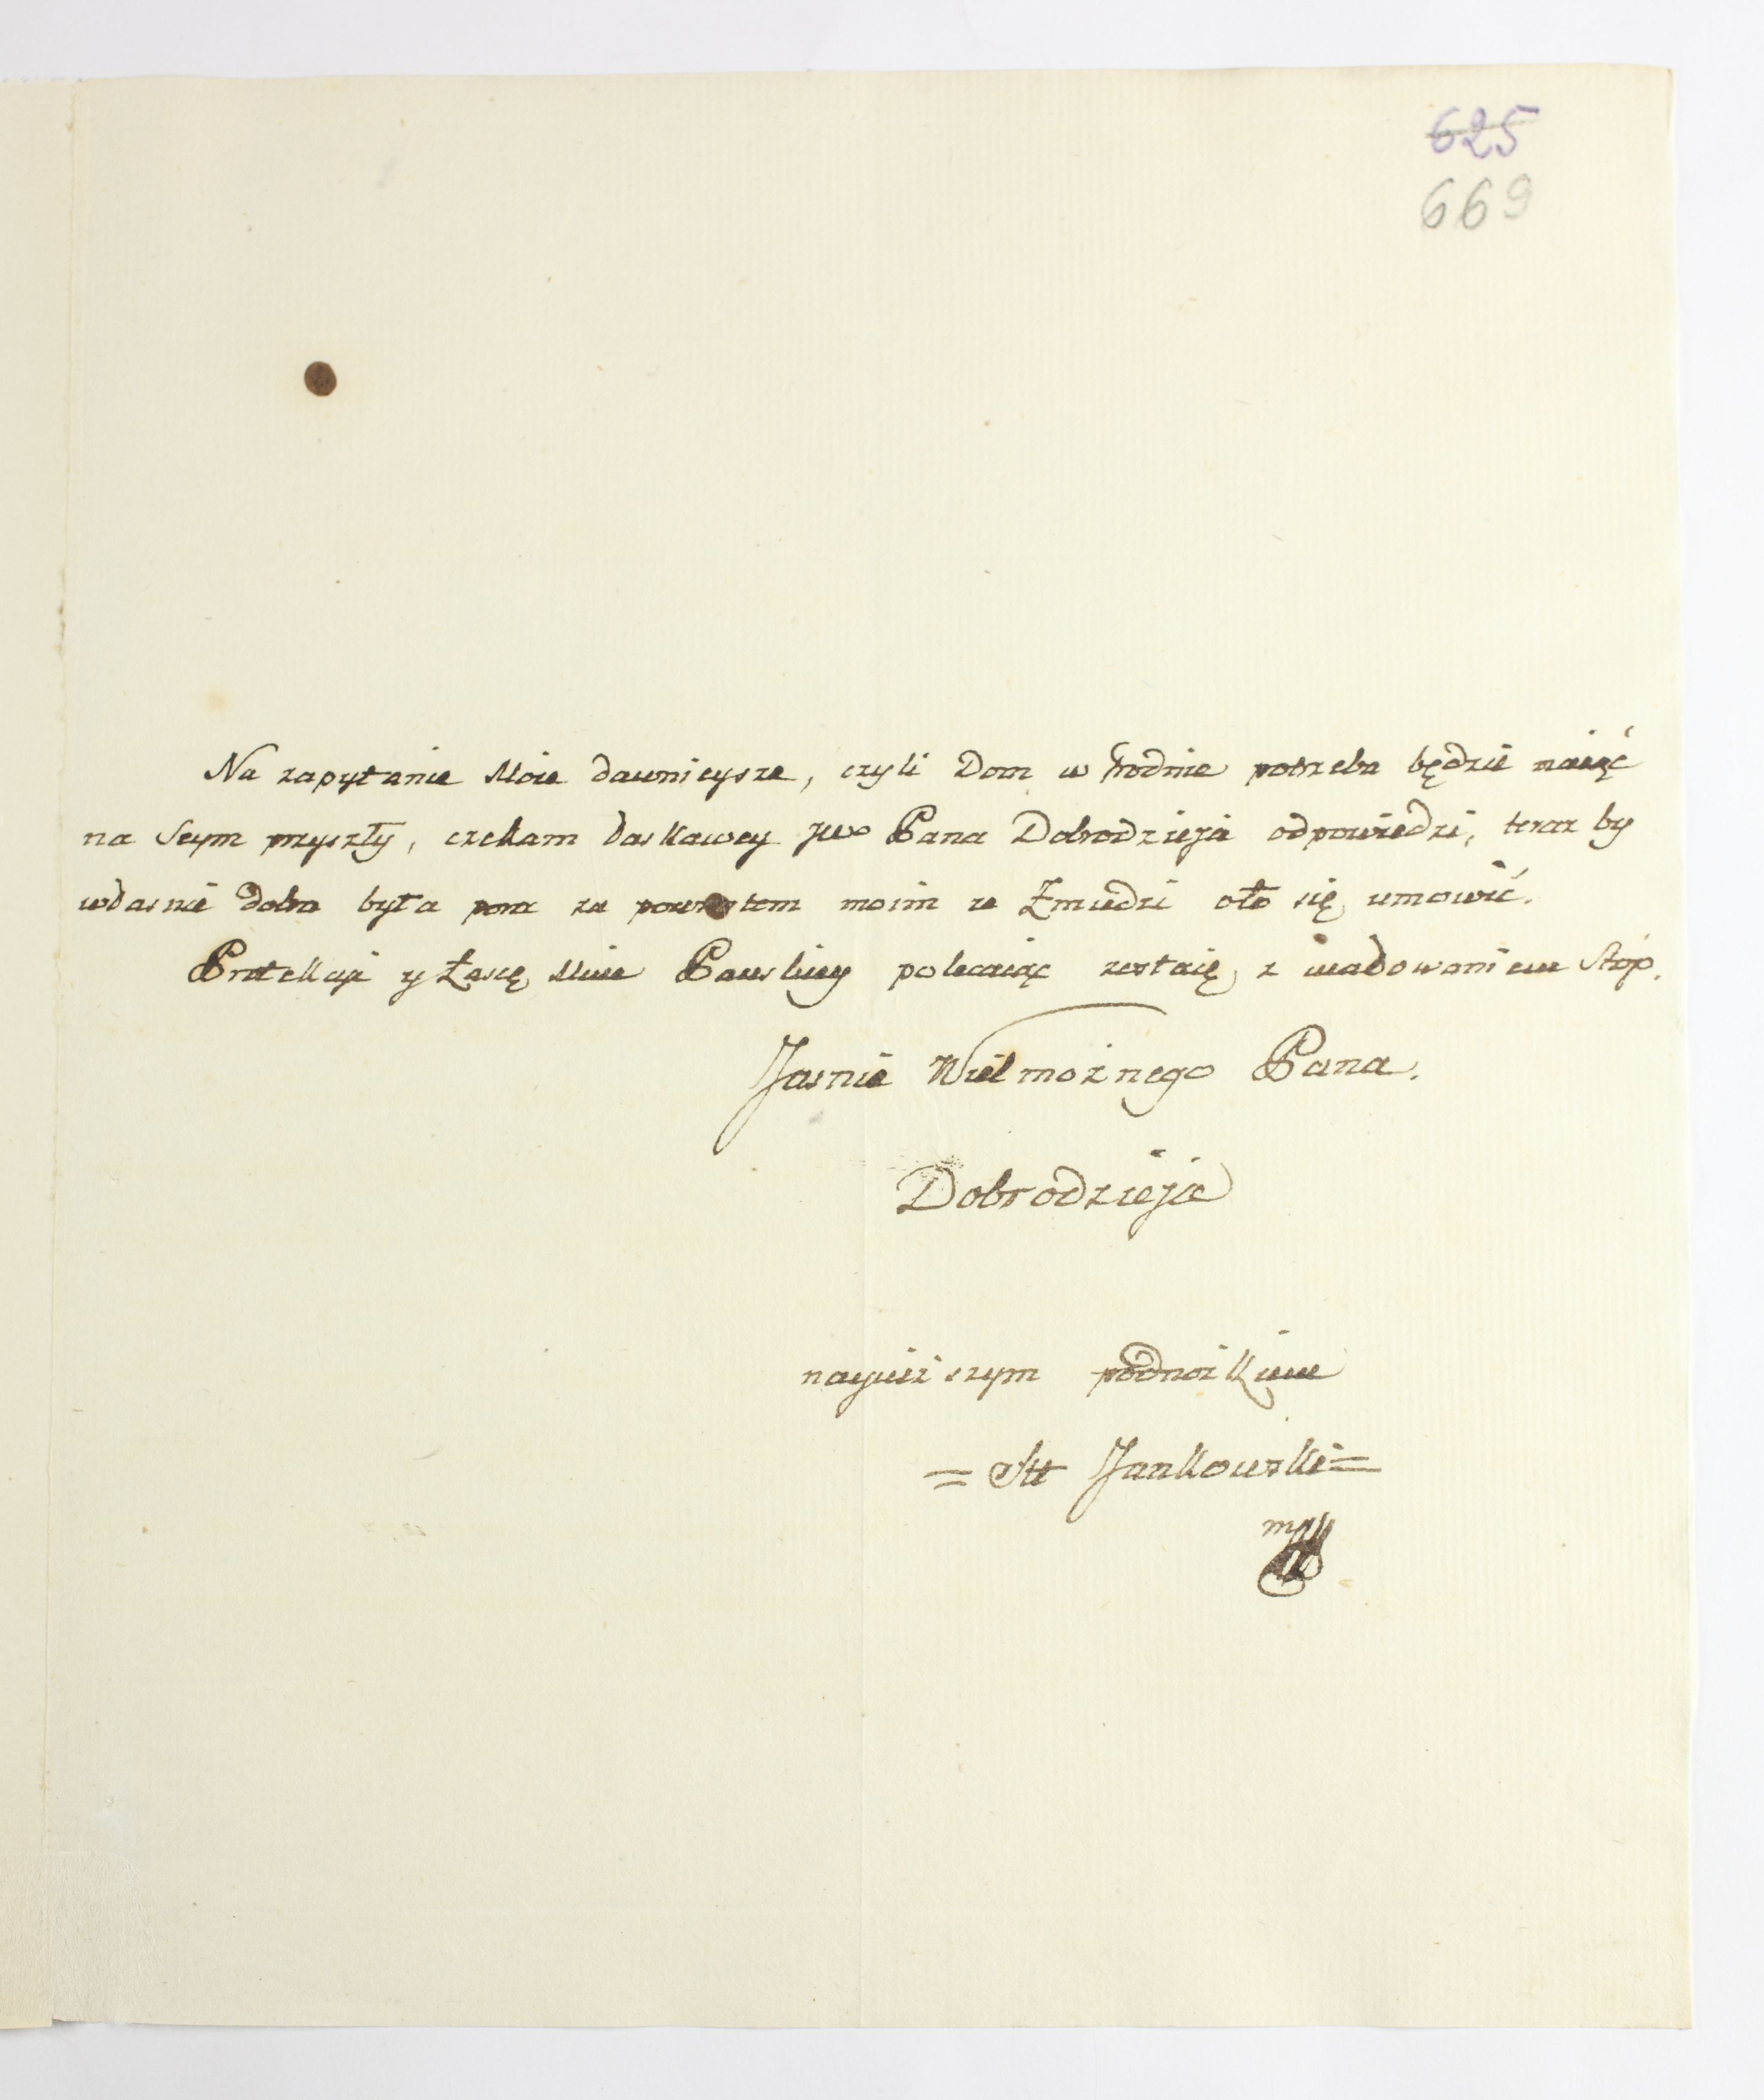 625
669
Na zapytanie Moie dawnieysze, czyli Dom w Grodnie potrzeba będzie naiąć
na Seym przyszły, czekam łaskawey JWo Pana Dobrodzieja odpowiedzi, teraz by
własnie dobra była pora za powrotem moim ze Zmudzi oto się umowić.
Protekcji y Łasce Pańskiey polecaiąc zostaię z ucałowaniem Stóp.
Jasnie Wielmożnego Pana.
Dobrodzieja
nayniższym podnożkiem
= Jankowski =
mpp